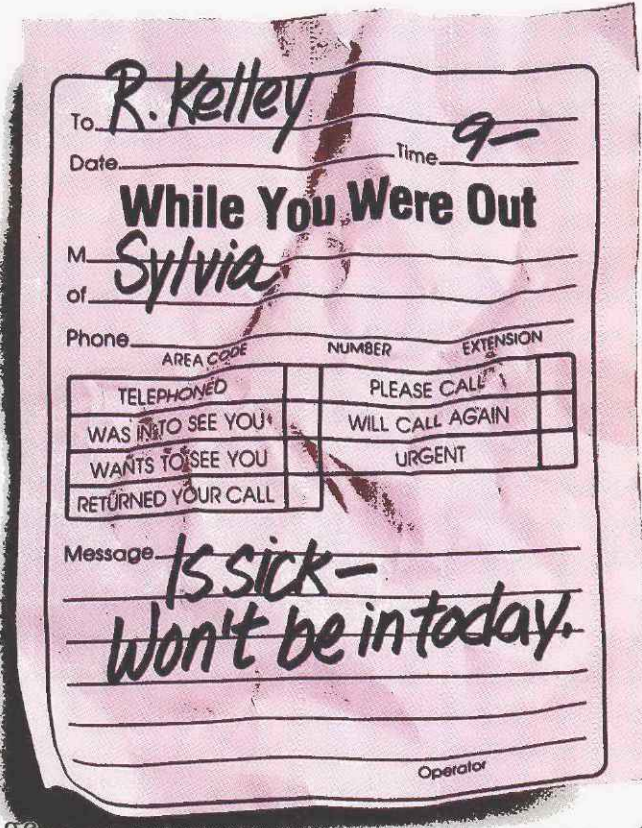 To R. Kelley
Date Time 9–
While You Were Out
M Sylvia
of
Phone
AREA CODE NUMBER EXTENSION
TELEPHONED PLEASE CALL
WAS IN TO SEE YOU WILL CALL AGAIN
WANTS TO SEE YOU URGENT
RETURNED YOUR CALL
Message Is sick–
Won't be in today.
Operator